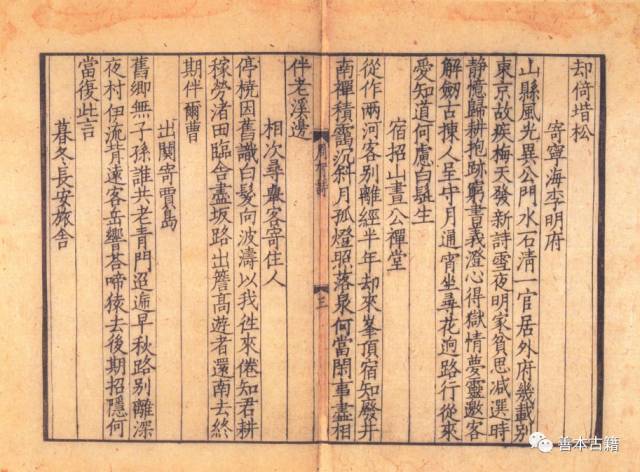 却倚堦松
寄寧海李明府
山縣風光異公門水石清一官居外府幾載別
東京故疾梅天發新詩雪夜明家貧思减選時
静憶歸耕抱跡窮書義澄心得獄情夢靈邀客
解劒古揀人呈守月通宵坐尋花逈路行從來
愛知道何慮白髭生
宿招山晝公禪堂
從作兩河客別離經半年却來峯頂宿知廢井
南禪積靄沉斜月孤燈照落泉何當閑事盡相
伴老溪邊
相次尋舉客寄住人
停橈因舊識白髮向波濤以我徃來倦知君耕
稼勞渚田臨舍盡坂路出簷髙遊者還南去終
期伴爾曹
出関寄賈島
舊鄉無子孫誰共老青門迢遞早秋路別離深
夜村伊流背遠客岳響荅啼猿去後期招隱何
當復此言
暮冬長安旅舍
周賀詩
三
善本古籍